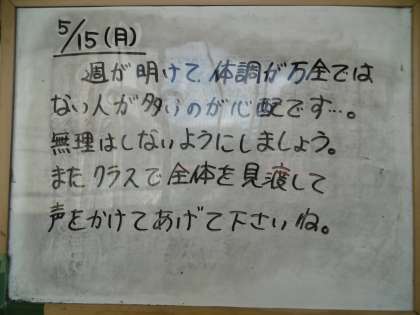 5/15(月)
週が明けて、体調が万全では
ない人が多いのが心配です…。
無理はしないようにしましょう。
またクラスで全体を見渡して
声をかけてあげて下さいね。